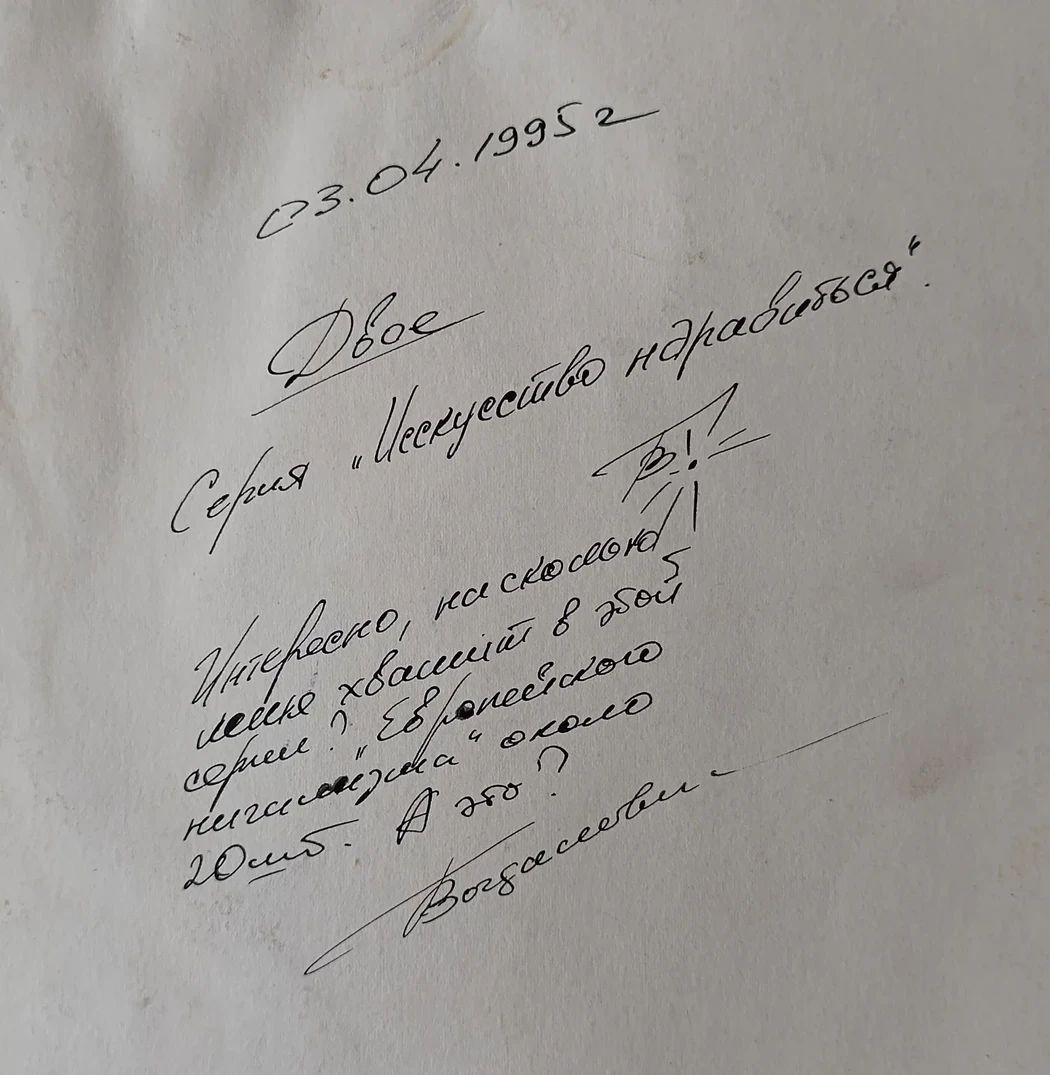 03.04.1995г
Двое
Серия „Исскусство ндравиться“.
В!
Интересно, насколько
меня хватит в этой
серии? „Европейского
нигилизма“ около
20 шт. А это?